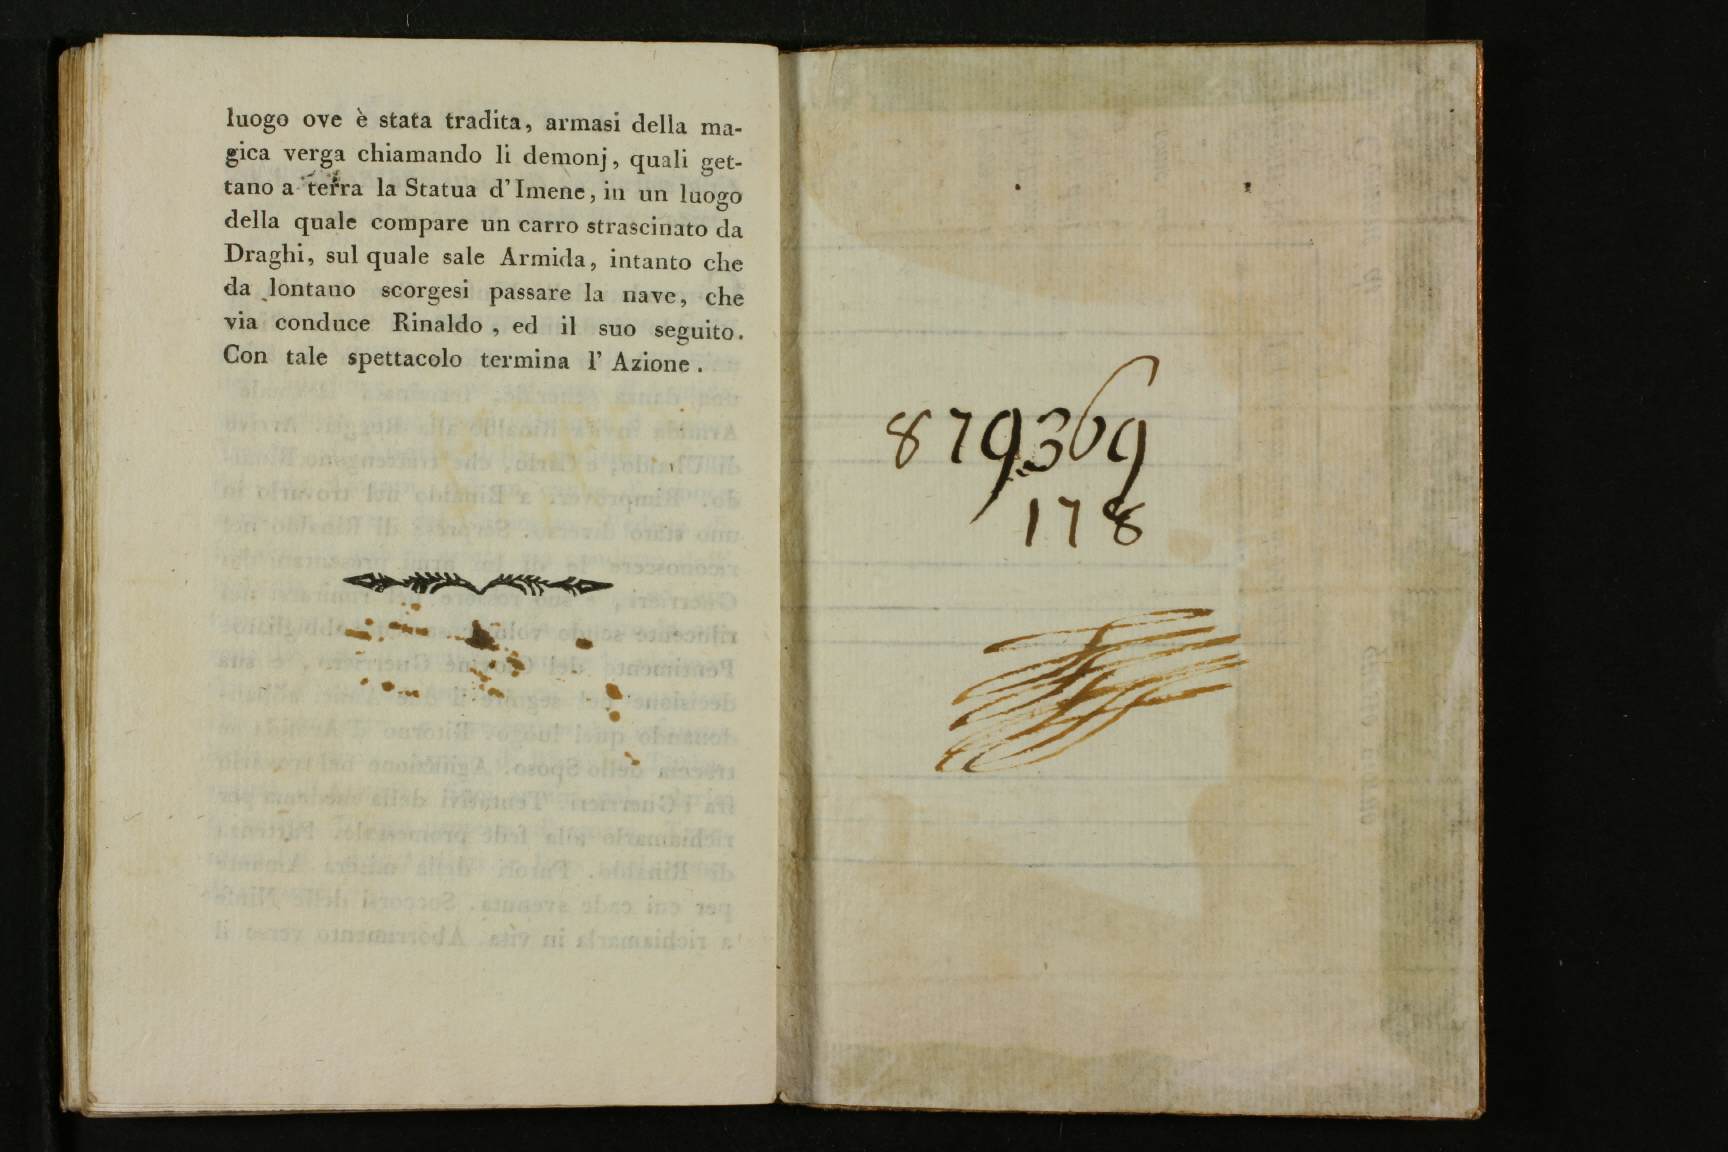 luogo ove è stata tradita, armasi della ma-
gica verga chiamando li demonj, quali get-
tano a terra la Statua d'Imene, in un luogo
della quale compare un carro strascinato da
Draghi, sul quale sale Armida, intanto che
da lontano scorgesi passare la nave, che
via conduce Rinaldo, ed il suo seguito.
Con tale spettacolo termina l'Azione.
879369
178